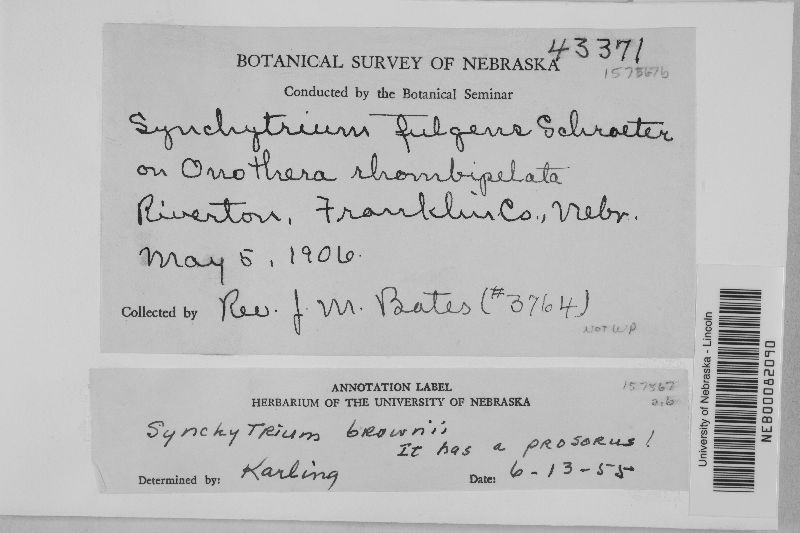 BOTANICAL SURVEY OF NEBRASKA 43371
157867b
Conducted by the Botanical Seminar
Synchytrium fulgens Schroeter
on Onothera rhombipelata
Riverton, Franklin Co., Nebr.
May 5, 1906.
Collected by Rev. J. M. Bates (#3764)
NOT WP
ANNOTATION LABEL
HERBARIUM OF THE UNIVERSITY OF NEBRASKA
157867
a,b
Synchytrium brownii
It has a prosorus!
Determined by: Karling
Date: 6-13-55
University of Nebraska - Lincoln
NEB00082090